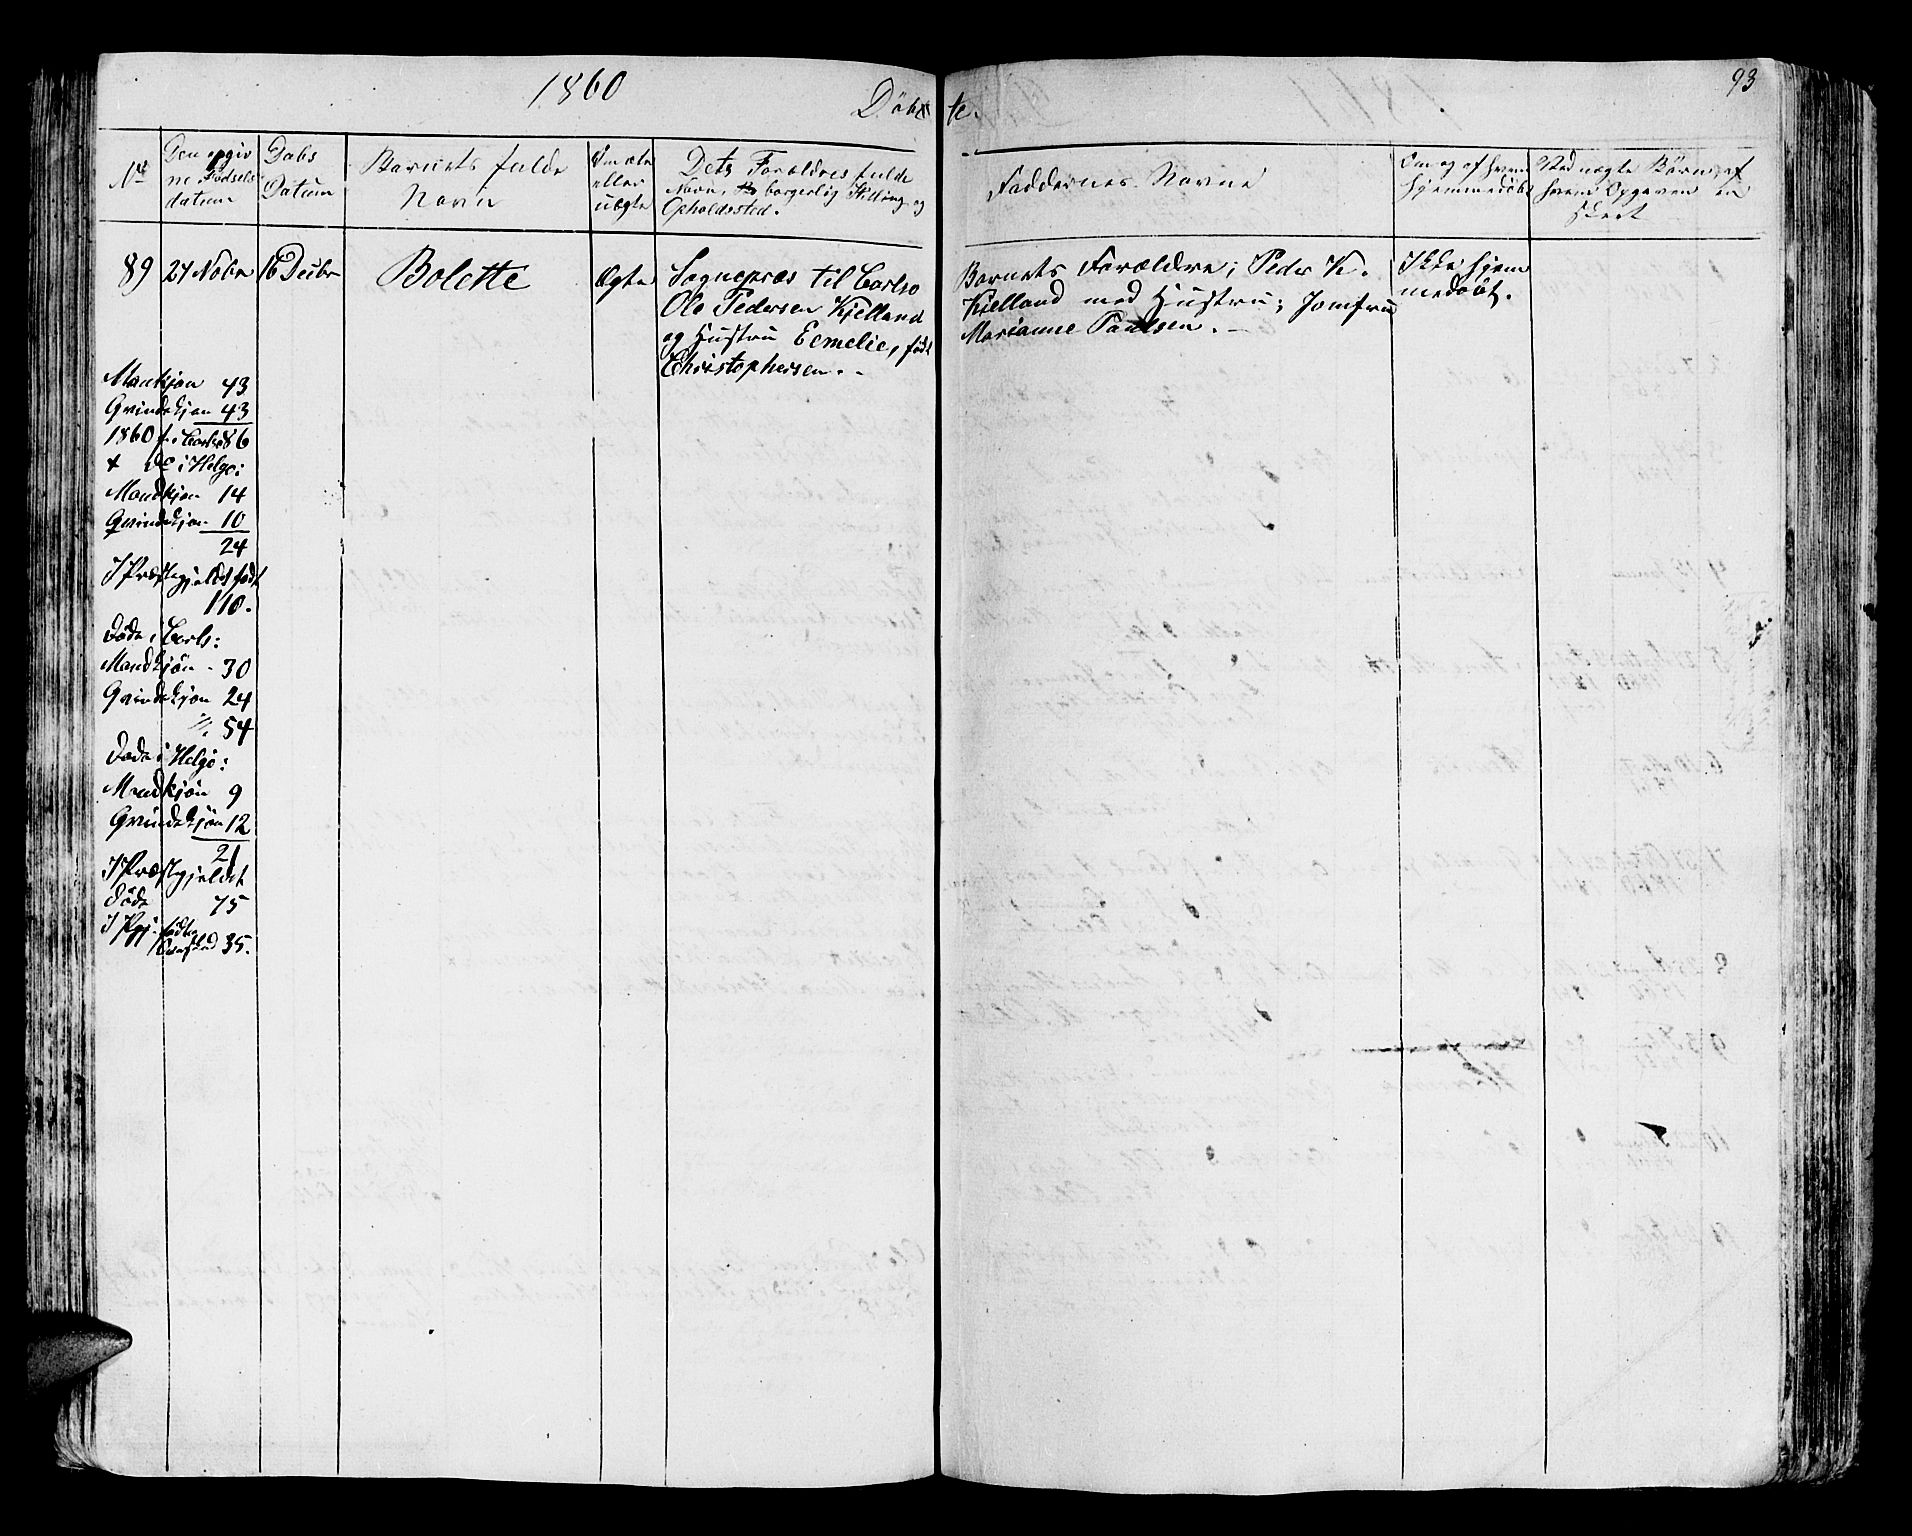 1860
Döbte.
93
No
Den opgiv
ne Födsels
datum
Daabs
Datum
Barnets fulde
Navn
Om ægte
eller
uægte
Dets Forældres fulde
Navn, borgerlig Stilling og
Opholdssted.
Faddernes Navne
Om og af hvem
hjemmedöbt
Ved uægte Börn, af
hvem Opgaven er
skeet
89
24 Novbr
16 Decbr
Bolette
Ægte
Sognepræs til Carlsö
Ole Pedersen Kjelland
og Hustru Eemelie, född
Christophersen. -
Barnets Forældre; Peder K.
Kielland med Hustru; Jomfru
Marianne Paulsen. -
Ikke hjem
medöbt.
Mankjön 43
Qvindekjön 43
1860 f. i Carlsö 86
+ do i Helgö:
Mandkjön 14
Qvindekjön 10
24
I Præstegjeldet födt
110.
Döde i Carls:
Mandkjön - 30
Qvindekjön 24
54
Döde i Helgö:
Mandkjön 9
Qvindekjön 12
21
I Præstegjeldet
Döde 75
I Pgj. födte
35.